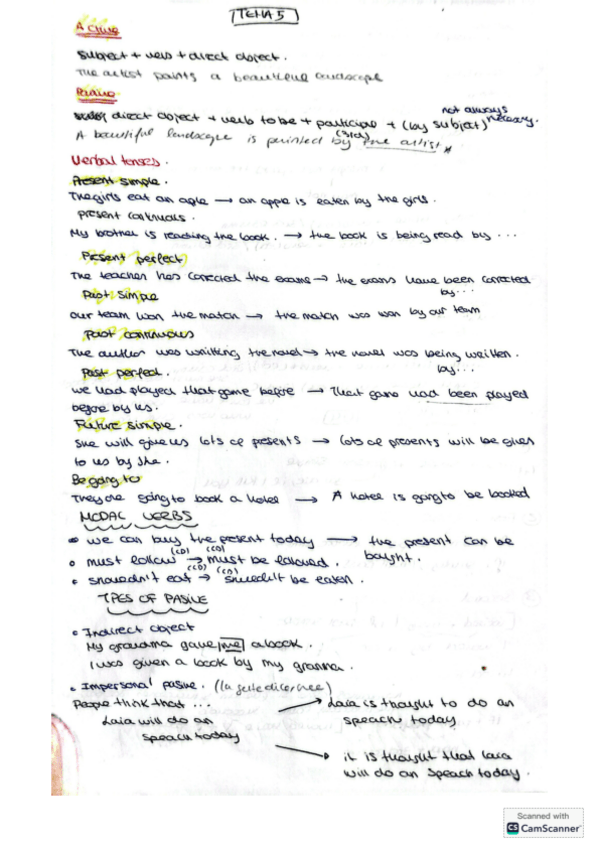 TEMA 5
Active
Subject + verb + direct object.
The artist paints a beautiful landscape
Pasive
direct object + verb to be + participle + (by subject) not always necessary.
A beautiful landscape is painted by the artist
(3rd)
Verbal tenses.
Present simple.
The girls eat an aple → an apple is eaten by the girls.
Present continuos.
My brother is reading the book. → the book is being read by ...
Present perfect
The teacher has corrected the exams → the exams have been corrected
by...
Past simple
Our team won the match → the match was won by our team
Past continuous
The author was writting the novel → the novel was being written.
by...
Past perfect.
we had played that game before → That game had been played
before by us.
Future simple.
She will give us lots of presents → lots of presents will be given
to us by she.
Be going to
They are going to book a hotel → A hotel is going to be booked
MODAL VERBS
we can buy the present today → the present can be
bought.
must follow (CD) → (CD) must be followed.
shouldn't eat (CD) → (CD) shouldn't be eaten.
TPES OF PASIVE
Indirect object
My grandma gave me a book.
I was given a book by my granma.
Impersonal pasive. (la gente dice/cree)
People think that ...
Laia will do an
speach today
Laia is thought to do an
speach today
it is thought that Laia
will do an speach today.
Scanned with
CS CamScanner